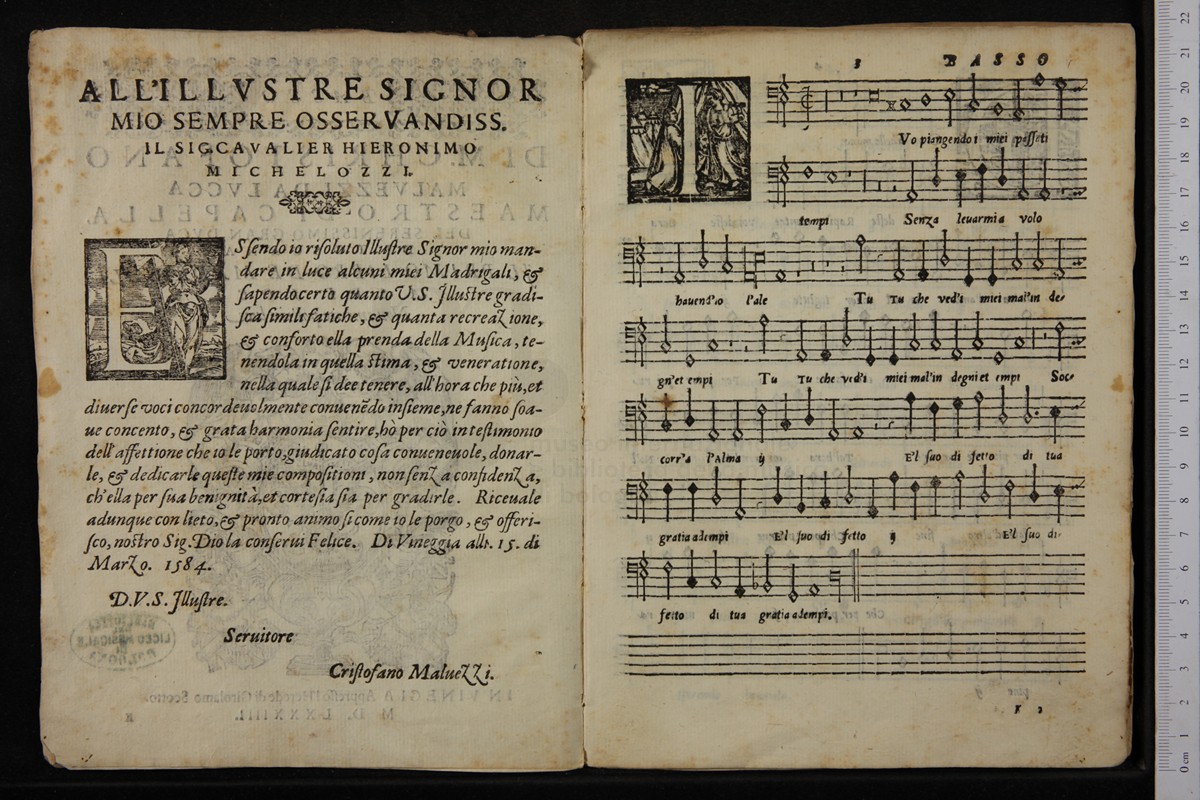 ALL'ILLVSTRE SIGNOR
MIO SEMPRE OSSERVANDISS.
IL SIG.CAVALIER HIERONIMO
MICHELOZZI.
ESsendo io risoluto Illustre Signor mio man-
dare in luce alcuni miei Madrigali, &
sapendo certo quanto V.S. Illustre gradi-
sca simili fatiche, & quanta recreazione,
& conforto ella prenda della Musica, te-
nendola in quella stima, & veneratione,
nella quale si dee tenere, all'hora che piu, et
diuerse voci concordeuolmente conuenẽdo insieme, ne fanno soa-
ue concento, & grata harmonia sentire, hò per ciò in testimonio
dell'affettione che io le porto, giudicato cosa conueneuole, donar-
le, & dedicarle queste mie compositioni, non senza confidenza,
ch'ella per sua benignità, et cortesia sia per gradirle. Riceuale
adunque con lieto, & pronto animo si come io le porgo, & offeri-
sco, nostro Sig. Dio la conserui Felice. Di Vineggia alli. 15. di
Marzo. 1584.
D.V.S. Illustre.
Seruitore
Cristofano Maluezzi.
3 BASSO
I Vo piangendo i miei passati
tempi Senza leuarmi a volo
hauend'io l'ale Tu Tu che ved'i miei mal'in de-
gn'et empi Tu Tu che ved'i miei mal'in degni et empi Soc-
corr'a l'Alma ij E'l suo di fetto di tua
gratia adempi E'l suo di fetto ij E'l suo di-
fetto di tua gratia adempi.
K 2